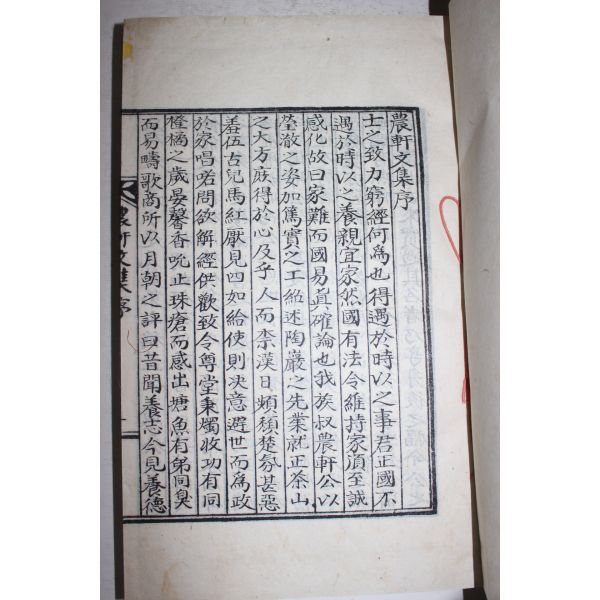 農軒文集序
士之致力窮經何為也得遇於時以之事君正國不
遇於時以之養親宜家然國有法令維持家須至誠
感化故曰家難而國易眞確論也我族叔農軒公以
瑩澈之姿加篤實之工紹述陶巖之先業就正茶山
之大方庶得於心及乎人而柰漢日頻頹楚氛甚惡
羞伍占兒馬紅厭見四如給使則决意避世而為政
於家唱喏問欲解經供歡致令尊堂秉燭收功有同
橙橘之歲晏馨香吮止珠瘡而感出塘魚有弟同臭
而易疇歌商所以月朝之評曰昔聞養志今見養德
農軒文集序